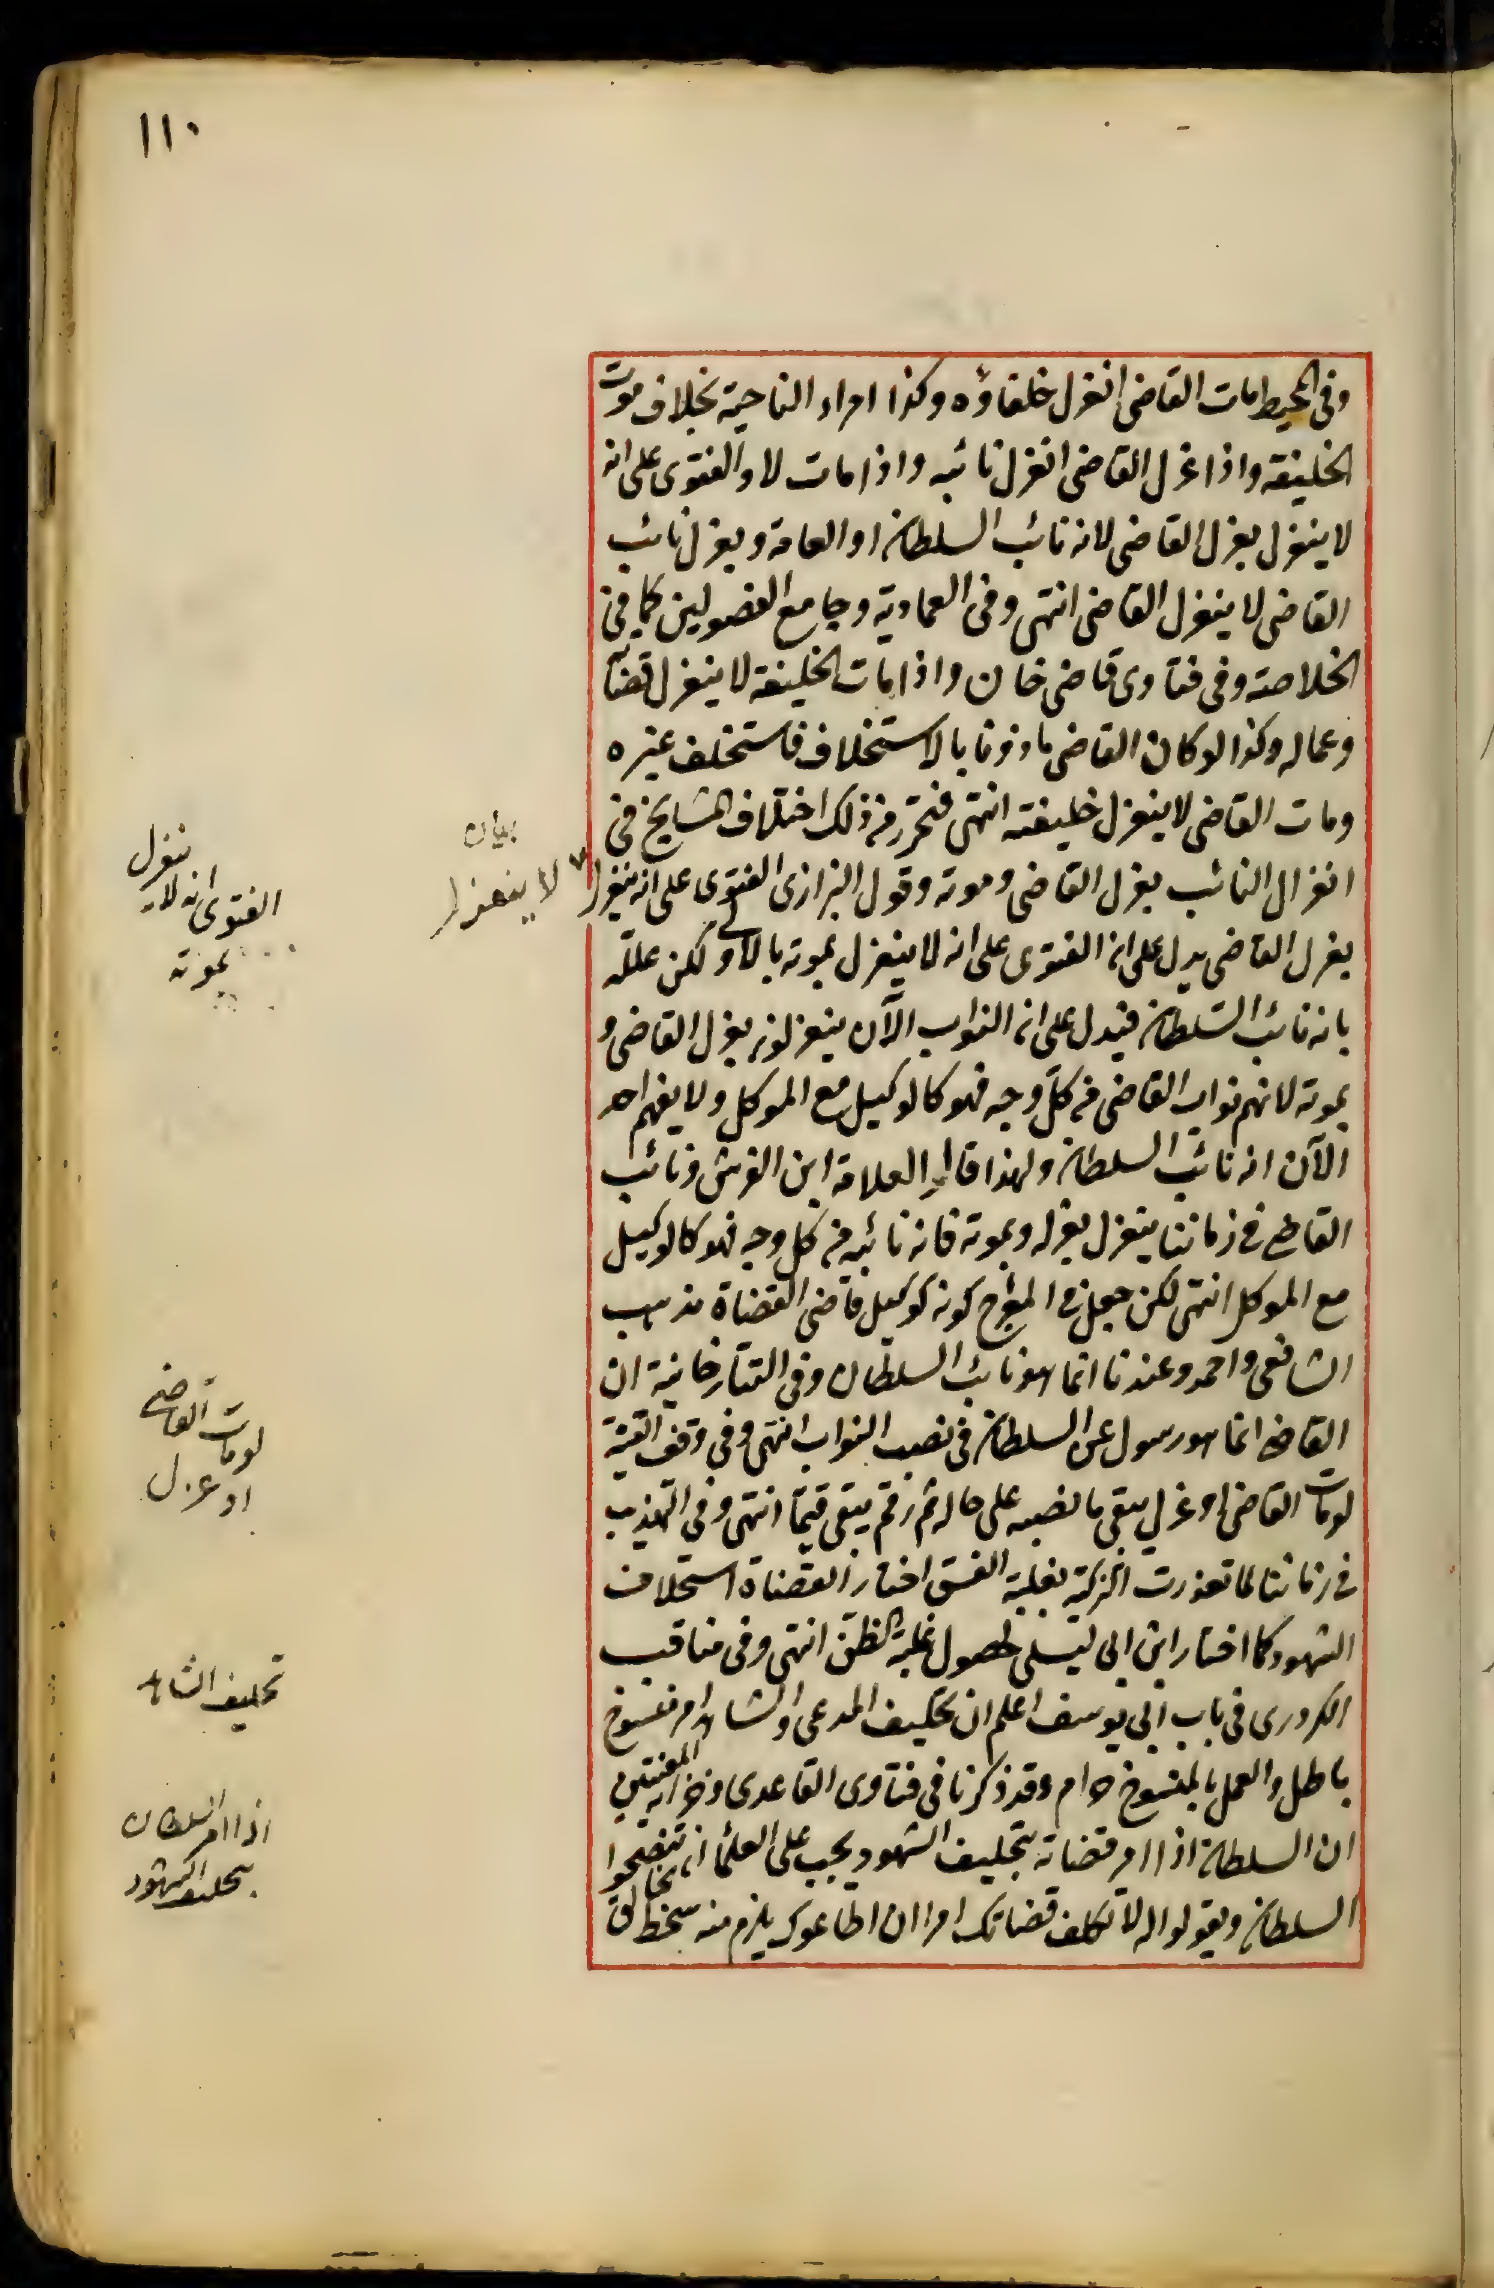 ١١٠
وفى المحيط مات القاضى انعزل خلفاؤه وكذا امراء الناحية بخلاف موت
الخليفة واذا عزل القاضى انعزل نائبه واذا مات لا والفتوى على انه
لا ينعزل بعزل القاضى لانه نائب السلطان او العامة وبعزل نائب
القاضى لا ينعزل القاضى انتهى وفى العمادية وجامع الفصولين كما فى
الخلاصة وفى فتاوى قاضى خان واذا مات الخليفة لا ينعزل قضاته
وعماله وكذا لو كان القاضى مأذونا بالاستخلاف فاستخلف غيره
ومات القاضى لا ينعزل خليفته انتهى فتحرر من ذلك اختلاف المشايخ فى
انعزال النائب بعزل القاضى وموته وقول البزازى الفتوى على انه ينعزل
بعزل القاضى يدل على ان الفتوى على انه لا ينعزل بموته بالاولى لكن علله
بانه نائب السلطان فيدل على ان النواب الآن ينعزلون بعزل القاضى و
بموته لانهم نواب القاضى من كل وجه فهو كالوكيل مع الموكل ولا يفهم احد
الآن انه نائب السلطان ولهذا قال العلامة ابن الغرس ونائب
القاضى فى زماننا ينعزل بعزله وبموته فانه نائبه من كل وجه فهو كالوكيل
مع الموكل انتهى لكن جعل فى المعراج كونه كوكيل قاضى القضاة مذهب
الشافعى واحمد وعندنا انما هو نائب السلطان وفى التتارخانية ان
القاضى انما هو رسول عن السلطان فى نصب النواب انتهى وفى وقف القنية
لو مات القاضى او عزل يبقى ما نصبه على حاله ثم رقم يبقى قيما انتهى وفى التهذيب
فى زماننا لما تعذرت التزكية بغلبة الفسق اختار القضاة استحلاف
الشهود كما اختار ابن ابى ليلى لحصول غلبة الظن انتهى وفى مناقب
الكردرى فى باب ابى يوسف اعلم ان تحليف المدعى والشاهد امر منسوخ
باطل والعمل بالمنسوخ حرام وقد ذكرنا فى فتاوى القاعدى وخزانة المفتين
ان السلطان اذا امر قضاته بتحليف الشهود يجب على العلماء ان تنصحوا
السلطان ويقولوا له لا تكلف قضاتك امرا ان اطاعوك يلزم منه سخط الخالق
بيان
لا ينعزل
الفتوى انه لا ينعزل
بموته
لو مات القاضى
او عزل
تحليف الشاهد
اذا امر السلطان
بتحليف الشهود